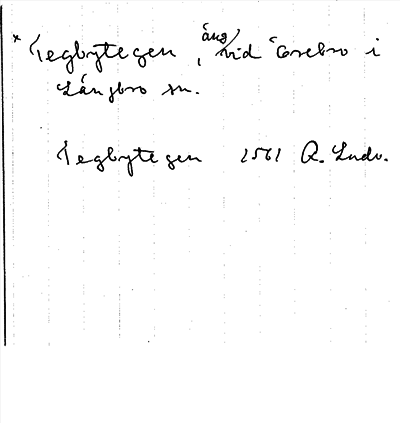 * Tegbytegen, äng vid Örebro i
Längbro sn.
Tegbytegen 1561 Q. Ludv.